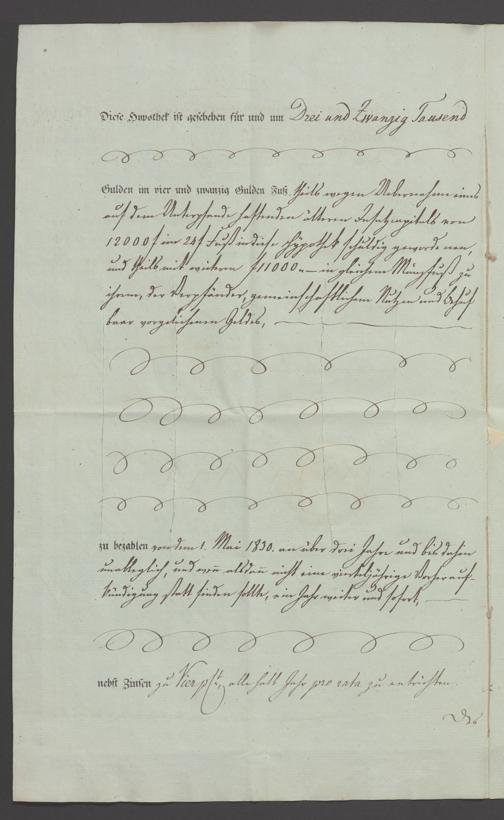 Diese Hypothek ist geschehen für und um Drei und Zwanzig Tausend
Gulden im vier und zwanzig Gulden Fuß, theils wegen Uebernahme eines
auf dem Unterpfande haftenden älteren Insatzcapitals von
12000 f im 24 f Fuß in diese Hypothek schuldig geworden,
und theils mit weitern f 11000 „— in gleichem Münzfuß zu
ihrem, der Verpfänder, gemeinschaftlichen Nutzen und Behuf
baar vorgeliehenen Geldes,
zu bezahlen von dem 1. Mai 1830. an über drei Jahre und bis dahin
unableglich, und wenn alsdann nicht eine vierteljährige Vorher auf-
kündigung statt finden sollte, ein Jahr weiter und sofort,
nebst Zinsen zu Vier pCt., alle halb Jahr pro rata zu entrichten.